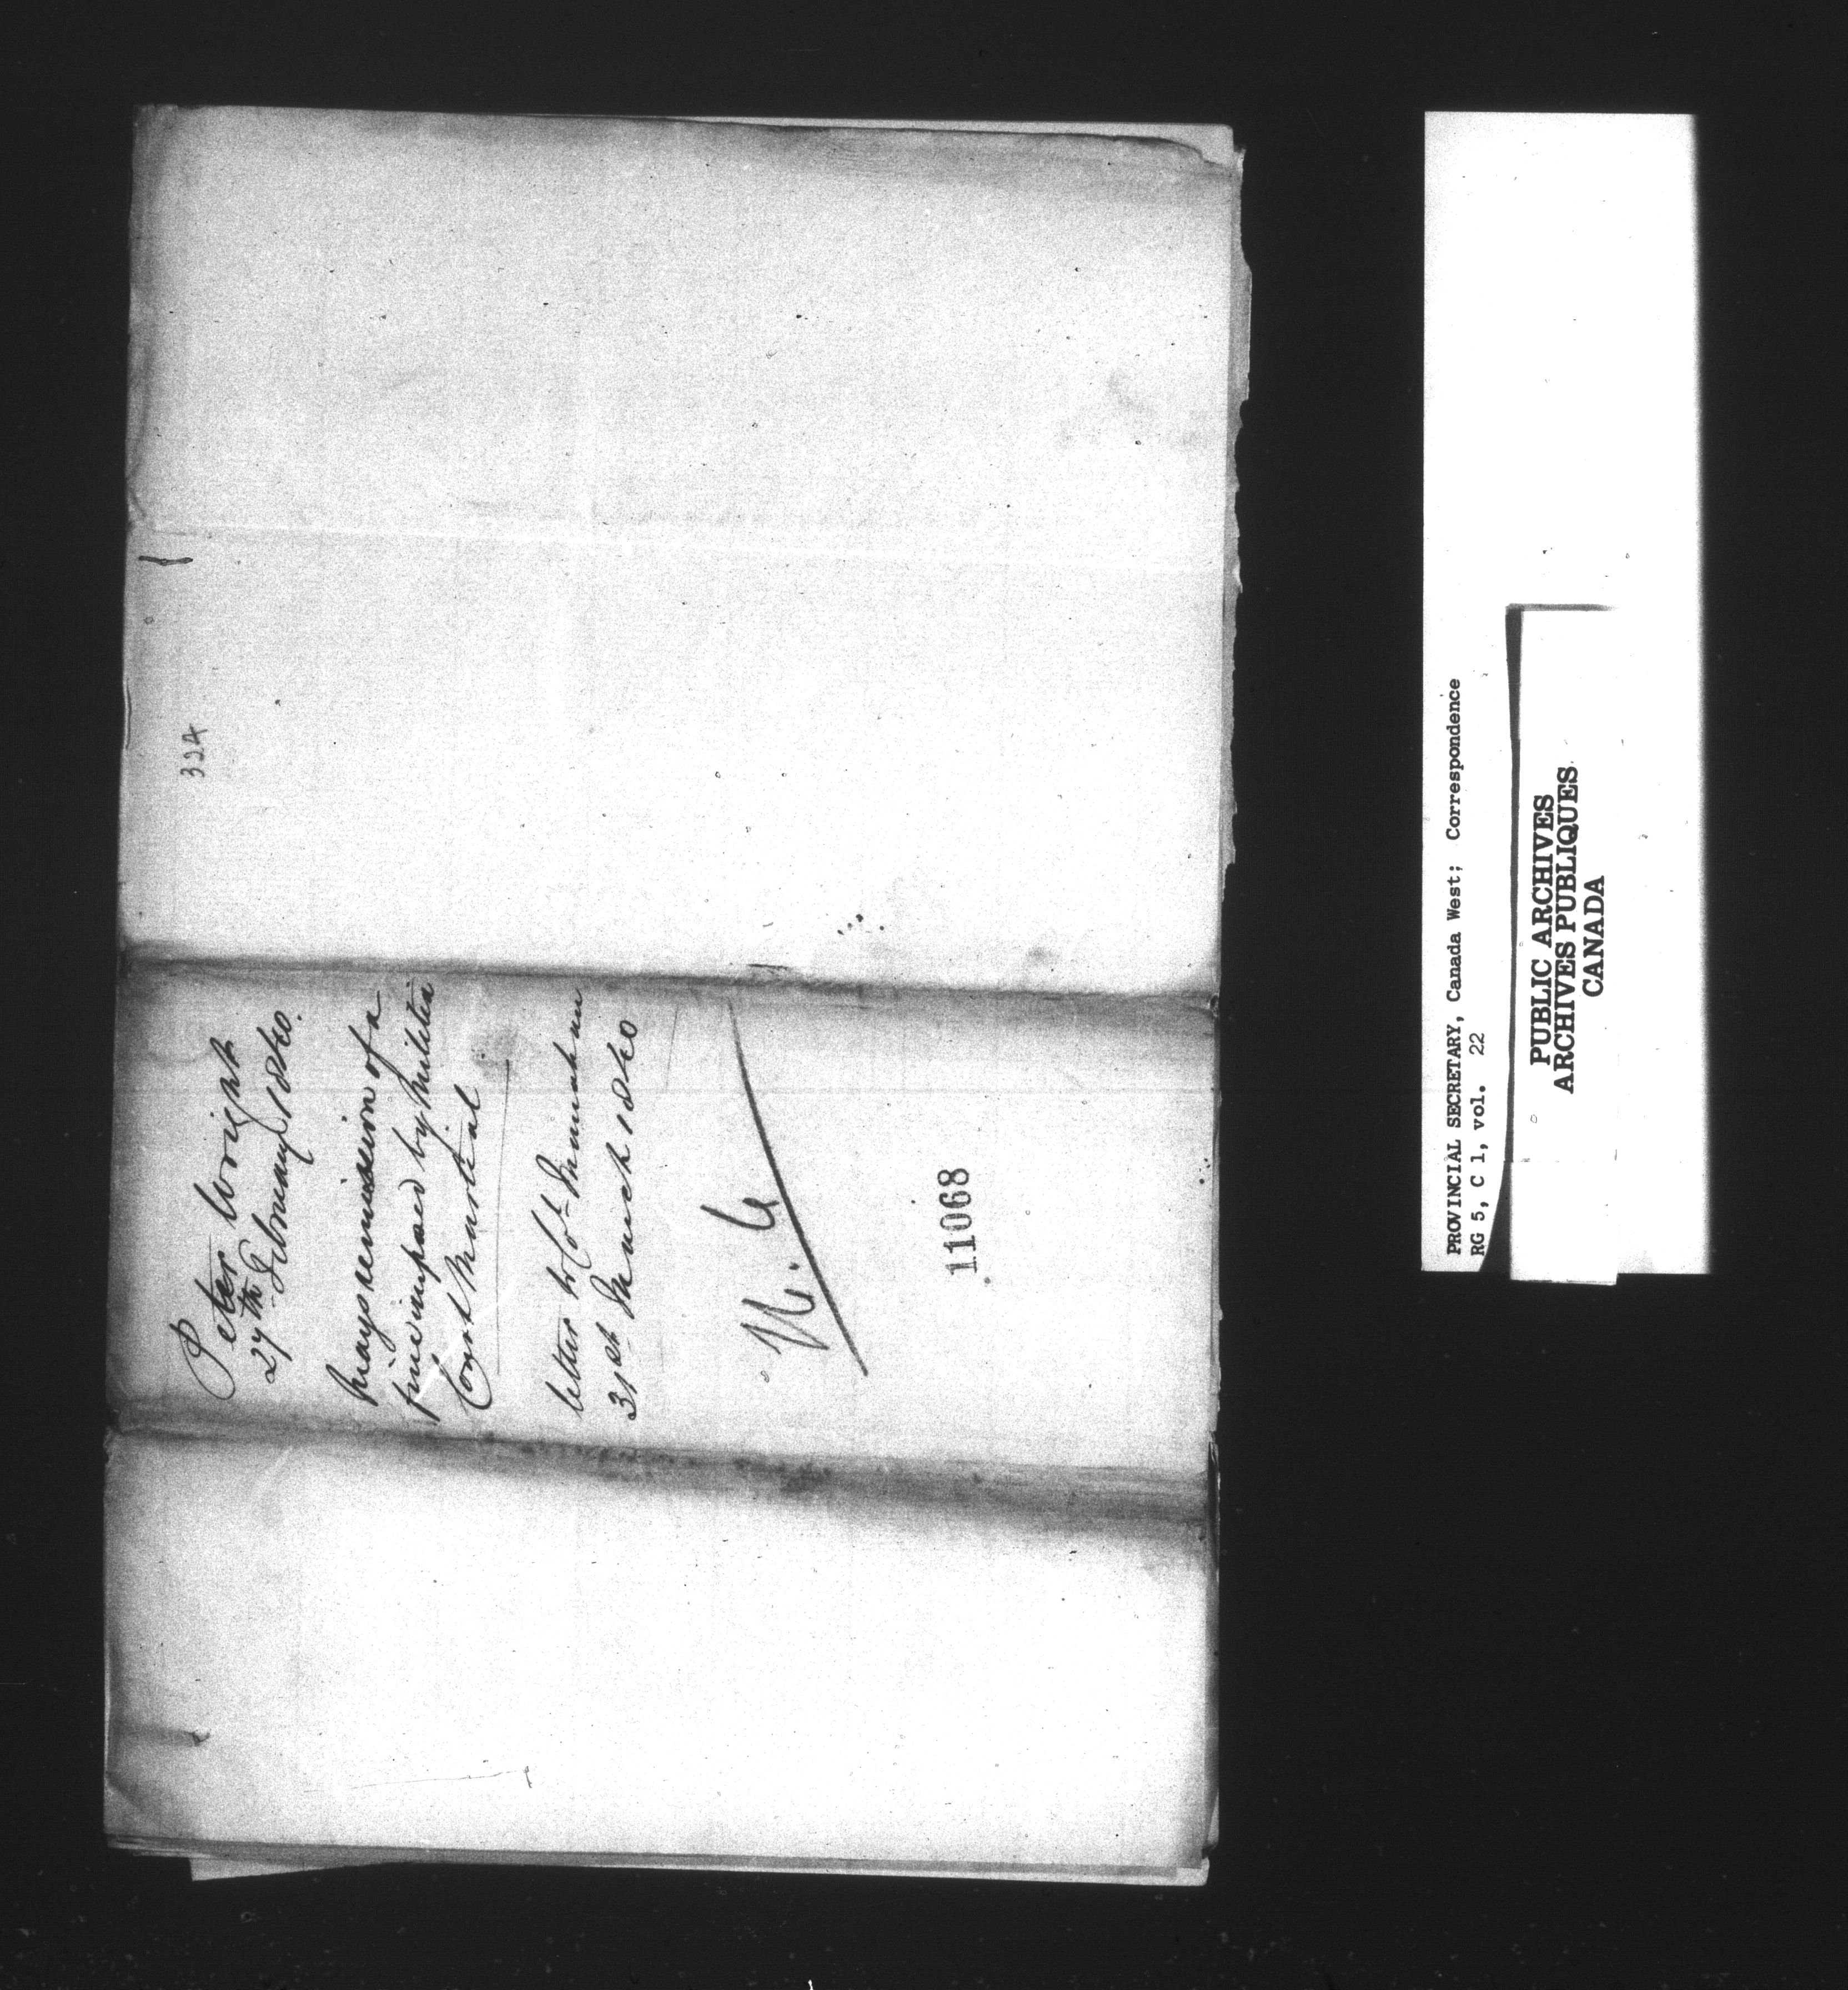 324
Peter Wright
27th February 1840.
prays remission of a
fine imposed by Militia
Court Martial
letter to Col
31st March 1840
11068
PROVINCIAL SECRETARY, Canada West; Correspondence
RG 5, C 1, vol. 22
PUBLIC ARCHIVES
ARCHIVES PUBLIQUES
CANADA